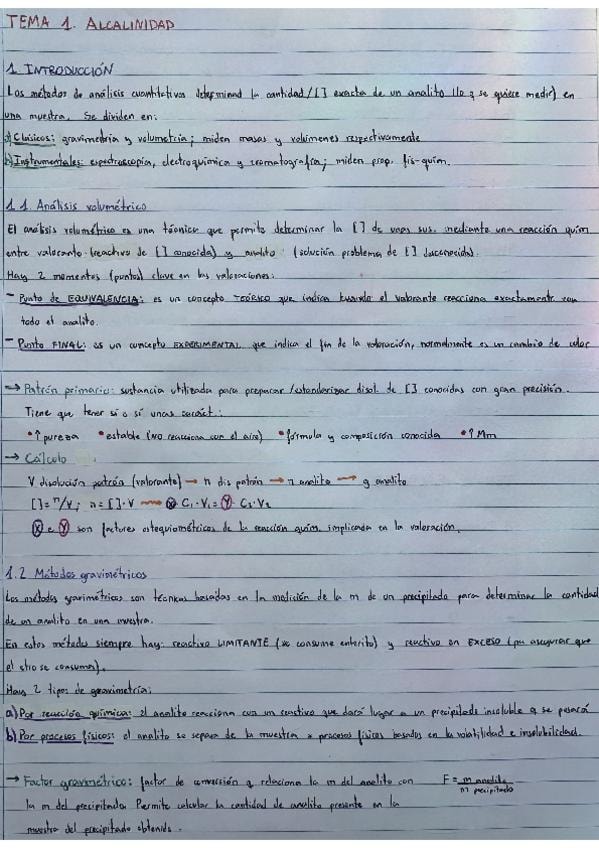 TEMA 1. ALCALINIDAD
1. INTRODUCCIÓN
Los métodos de análisis cuantitativos determinad la cantidad/[] exacta de un analito (lo q se quiere medir) en
una muestra. Se dividen en:
a) Clásicos: gravimetría y volumetría; miden masas y volúmenes respectivamente
b) Instrumentales: espectroscopía, electroquímica y cromatografía; miden prop. fis-quím.
1.1. Análisis volumétrico
El análisis volumétrico es una técnica que permite determinar la [] de unas sus. mediante una reacción quím
entre valorante (reactivo de [] conocida) y analito (solución problema de [] desconocida).
Hay 2 momentos (puntos) clave en las valoraciones:
- Punto de EQUIVALENCIA: es un concepto TEÓRICO que indica cuando el valorante reacciona exactamente con
todo el analito.
- Punto FINAL: es un concepto EXPERIMENTAL que indica el fin de la valoración, normalmente es un cambio de color
→ Patrón primario: sustancia utilizada para preparar/estandarizar disol. de [] conocidas con gran precisión.
Tiene que tener sí o sí unas caráct.:
• ↑ pureza • estable (NO reacciona con el aire) • fórmula y composición conocida • ↑ Mm
→ Cálculo
V disolución patrón (valorante) → n dis patrón → n analito → g analito
[] = n/V ; n = [] · V → X · C₁ · V₁ = Y · C₂ · V₂
X e Y son factores estequiométricos de la reacción quím. implicada en la valoración.
1.2 Métodos gravimétricos
Los métodos gravimétricos son técnicas basadas en la medición de la m de un precipitado para determinar la cantidad
de un analito en una muestra.
En estos métodos siempre hay: reactivo LIMITANTE (se consume enterito) y reactivo en EXCESO (pa asegurar que
el otro se consuma).
Hay 2 tipos de gravimetría:
a) Por reacción química: el analito reacciona con un reactivo que dará lugar a un precipitado insoluble q se pesará
b) Por procesos físicos: el analito se separa de la muestra x procesos físicos basados en la volatilidad e insolubilidad.
→ Factor gravimétrico: factor de conversión q relaciona la m del analito con F = m analito / m precipitado
la m del precipitado. Permite calcular la cantidad de analito presente en la
muestra del precipitado obtenido.